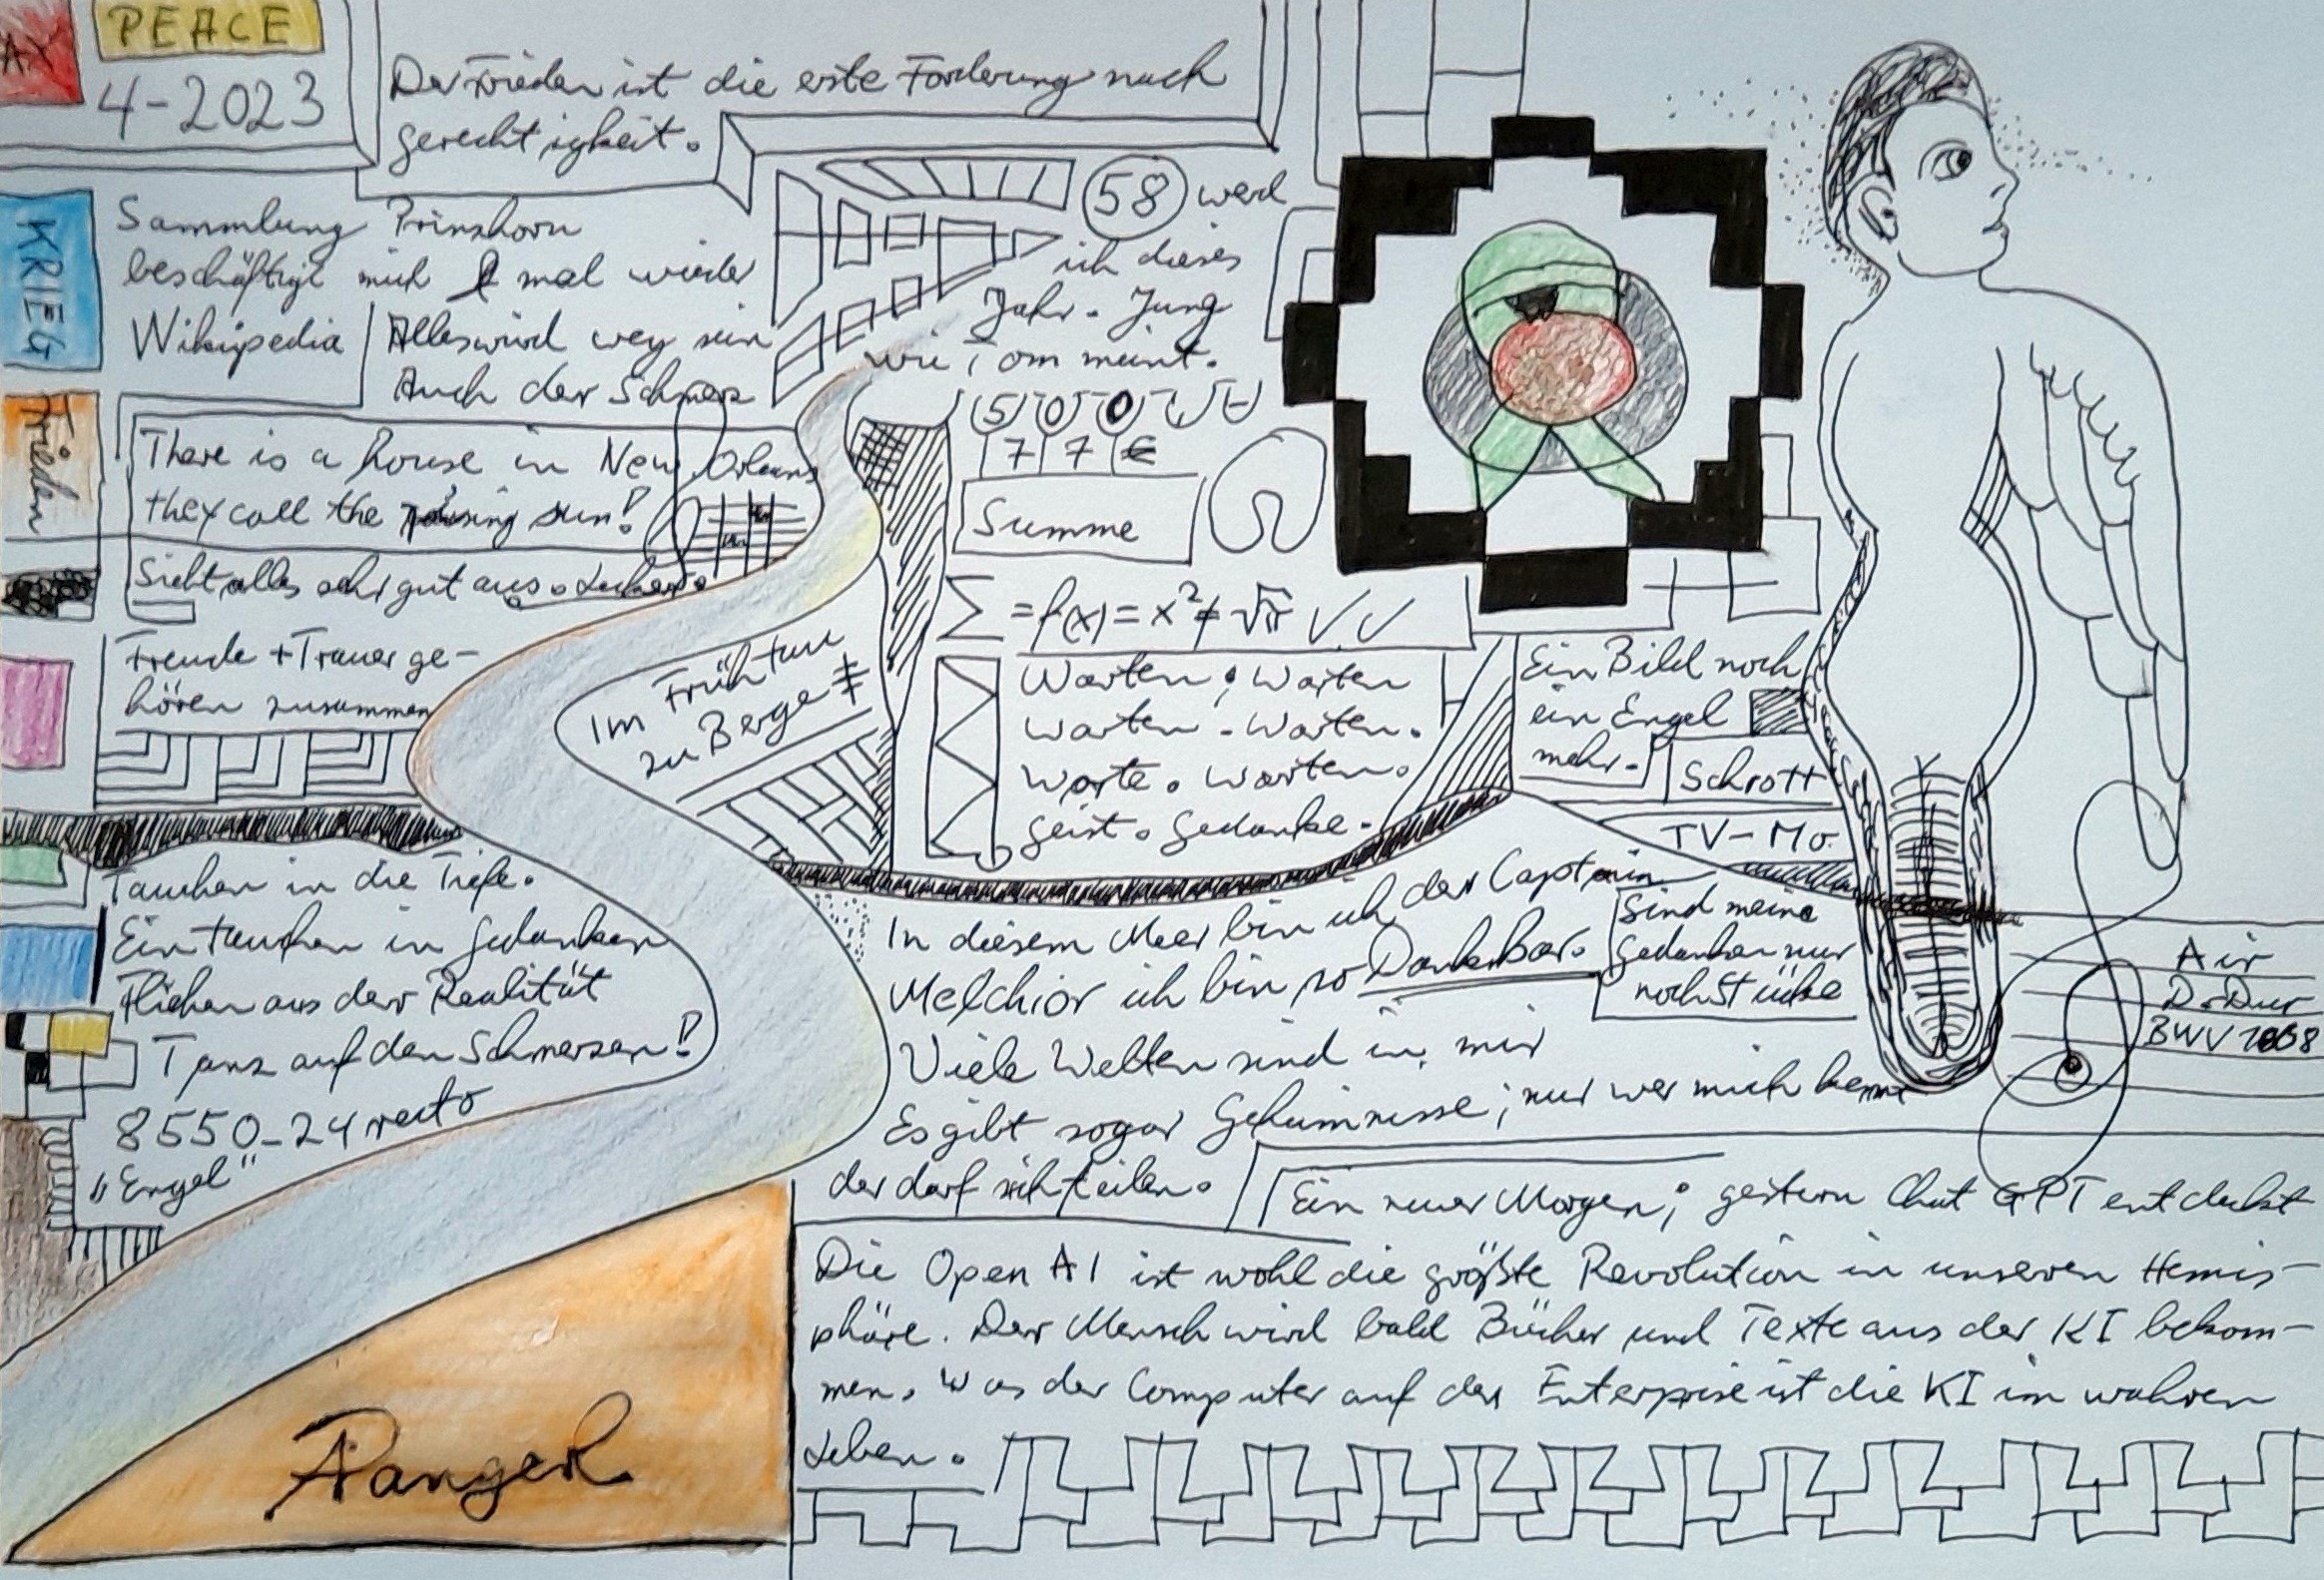 AX
PEACE
4-2023
Der Frieden ist die erste Forderung nach
gerechtigkeit.
KRIEG
Sammlung Prinzhorn
beschäftigt mich mal wieder
Wikipedia
Alles wird weg sein
Auch der Schmerz
58 werd
ich dieses
Jahr. Jung
wie Tom meint.
Frieden
There is a house in New Orleans
they call the rising sun!
Sieht alles sehr gut aus.
500
77€
Summe
Σ = f(x) = x² ≠ √π √√
Freude + Trauer ge-
hören zusammen
Im Frühtau
zu Berge
Warten; Warten
Warten. Warten.
Warte. Warten.
Geist. Gedanke.
Ein Bild noch
ein Engel
mehr.
Schrott
TV-Mo.
Tauchen in die Tiefe.
Eintauchen in Gedanken
Fliehen aus der Realität
Tanz auf den Schmerzen!
8550-24 recto
„Engel“
In diesem Meer bin ich der Captain
Melchior ich bin so Dankbar.
Sind meine
Gedanken nur
noch Stücke
Viele Welten sind in mir
Es gibt sogar Geheimnisse; nur wer mich kennt
der darf sich teilen.
Air
D-Dur
BWV 1068
Ein neuer Morgen; gestern Chat GPT entdeckt
Die Open AI ist wohl die größte Revolution in unseren Hemis-
phäre. Der Mensch wird bald Bücher und Texte aus der KI bekom-
men. Was der Computer auf der Enterprise ist die KI im wahren
Leben.